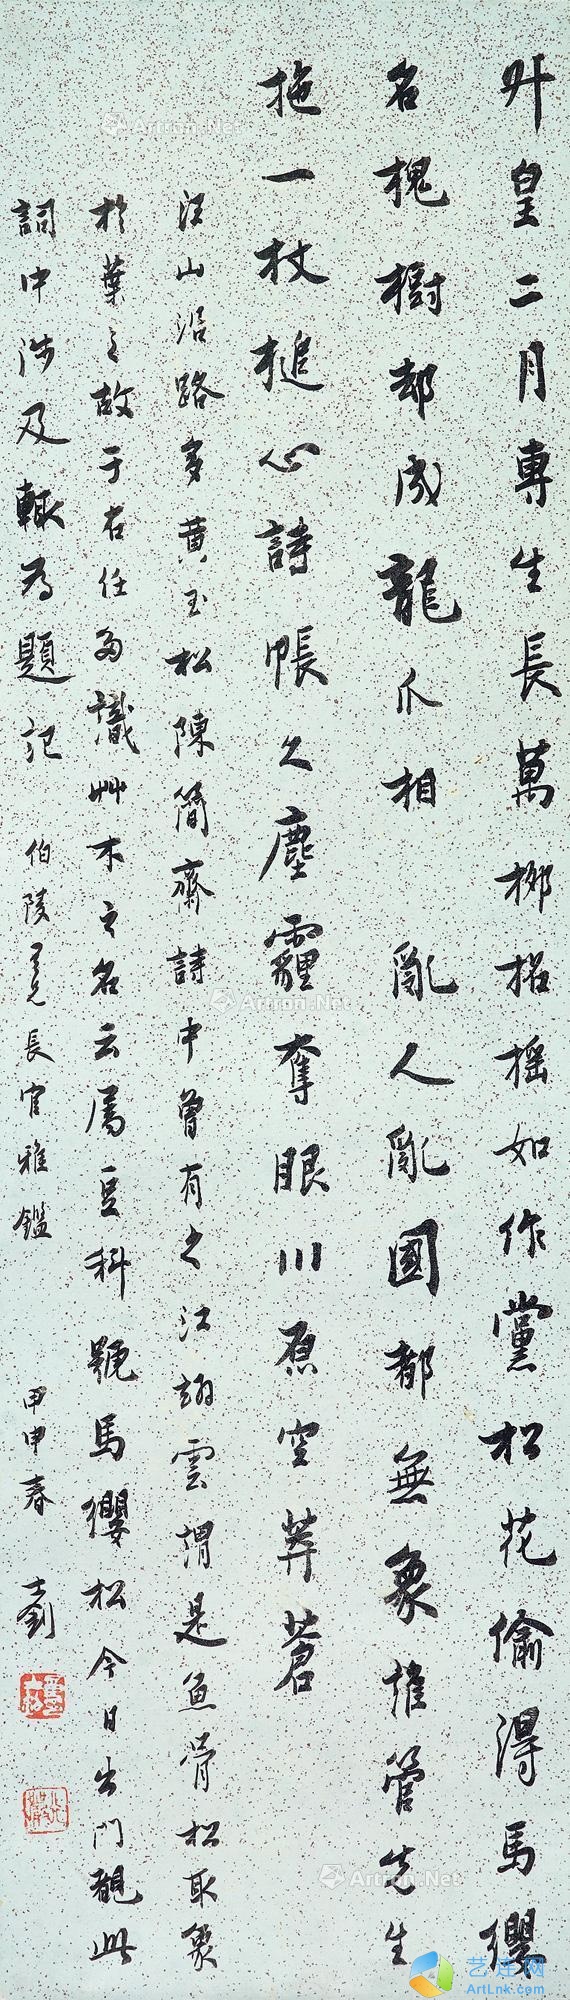 外皇二月專生長萬柳招搖如作黨松花偷得馬纓
名槐樹却成龍爪相亂人亂國都無象誰管先生
拖一杖搥心詩帳久塵霾奪眼川原空莽蒼
江山沿路多黄玉松陳簡齋詩中曾有之江翊雲謂是魚骨松取象
於葉之故于右任多識艸木之名云属豆科號馬纓松今日出門觀此
詞中涉及輒為題記 伯陵 長官雅鑑 甲申春 士釗
Artron.Net
Artron.Net
Artron.Net
艺连网
ArtLnk.com